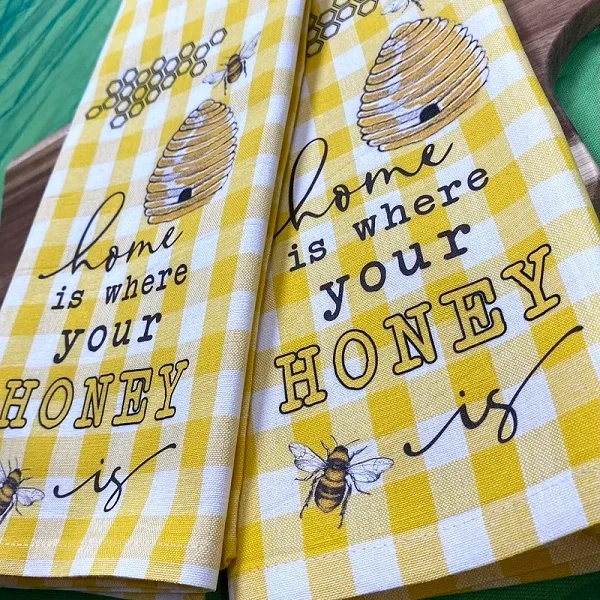 home
is where
your
HONEY
is
home
is where
your
HONEY
is